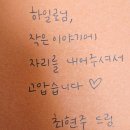 하일로님,
작은 이야기에
자리를 내어주셔서
고맙습니다 ♡
최현주 드림